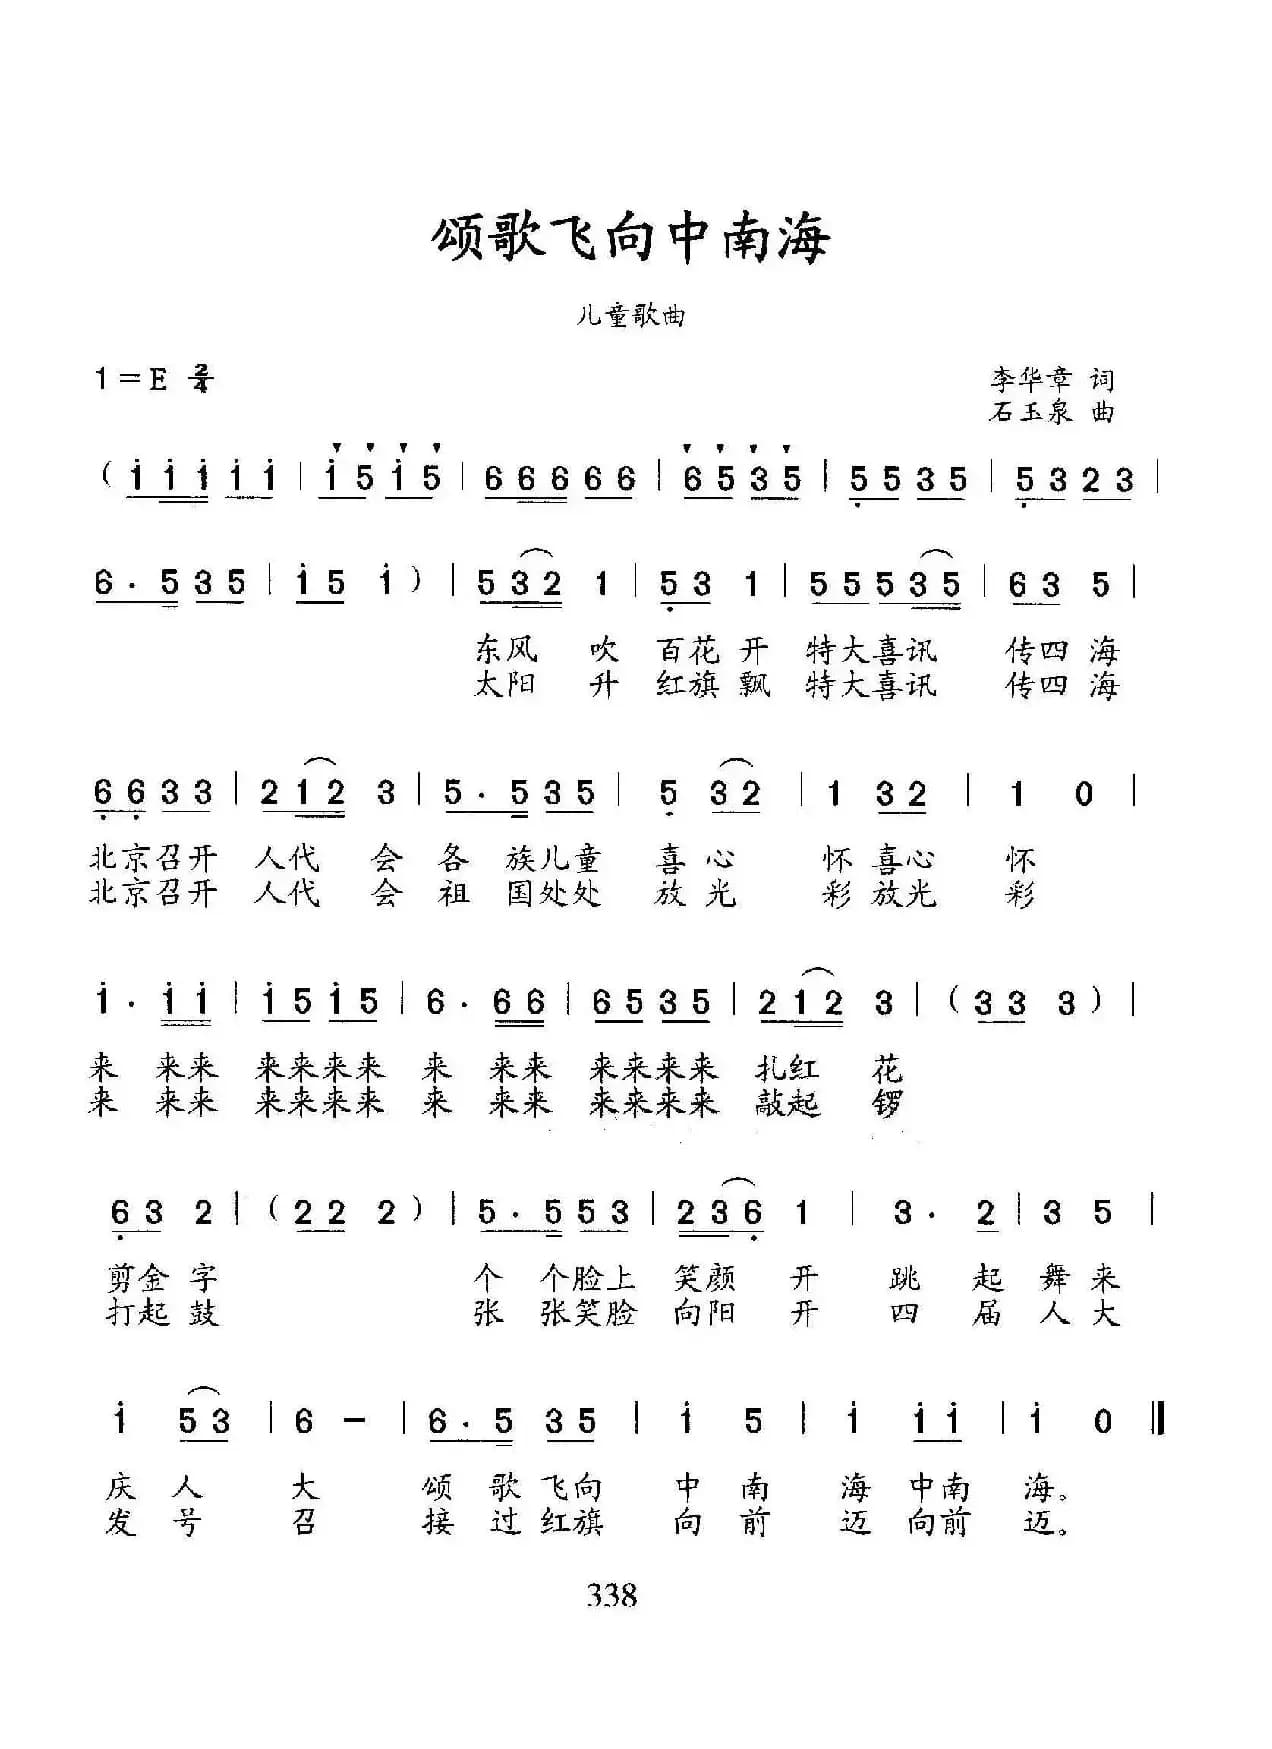 颂歌飞向中南海
儿童歌曲
1=E 2/4
李华章 词
石玉泉 曲
( i i i i i | i 5 i 5 | 6 6 6 6 6 | 6 5 3 5 | 5 5 3 5 | 5 3 2 3 |
6 . 5 3 5 | i 5 i ) | 5 3 2 1 | 5 3 1 | 5 5 5 3 5 | 6 3 5 |
东风 吹 百花 开 特大喜讯 传四 海
太阳 升 红旗 飘 特大喜讯 传四 海
6 6 3 3 | 2 1 2 3 | 5 . 5 3 5 | 5 3 2 | 1 3 2 | 1 0 |
北京召开 人代 会 各 族儿童 喜 心 怀 喜心 怀
北京召开 人代 会 祖 国处处 放 光 彩 放光 彩
i . i i | i 5 i 5 | 6 . 6 6 | 6 5 3 5 | 2 1 2 3 | ( 3 3 3 ) |
来 来来 来来来来 来 来来 来来来来 扎红 花
来 来来 来来来来 来 来来 来来来来 敲起 锣
6 3 2 | ( 2 2 2 ) | 5 . 5 5 3 | 2 3 6 1 | 3 . 2 | 3 5 |
剪金 字 个 个脸上 笑颜 开 跳 起 舞 来
打起 鼓 张 张笑脸 向阳 开 四 届 人 大
i 5 3 | 6 – | 6 . 5 3 5 | i 5 | i i i | i 0 ‖
庆 人 大 颂 歌 飞向 中 南 海 中南 海。
发 号 召 接 过 红旗 向 前 迈 向前 迈。
338